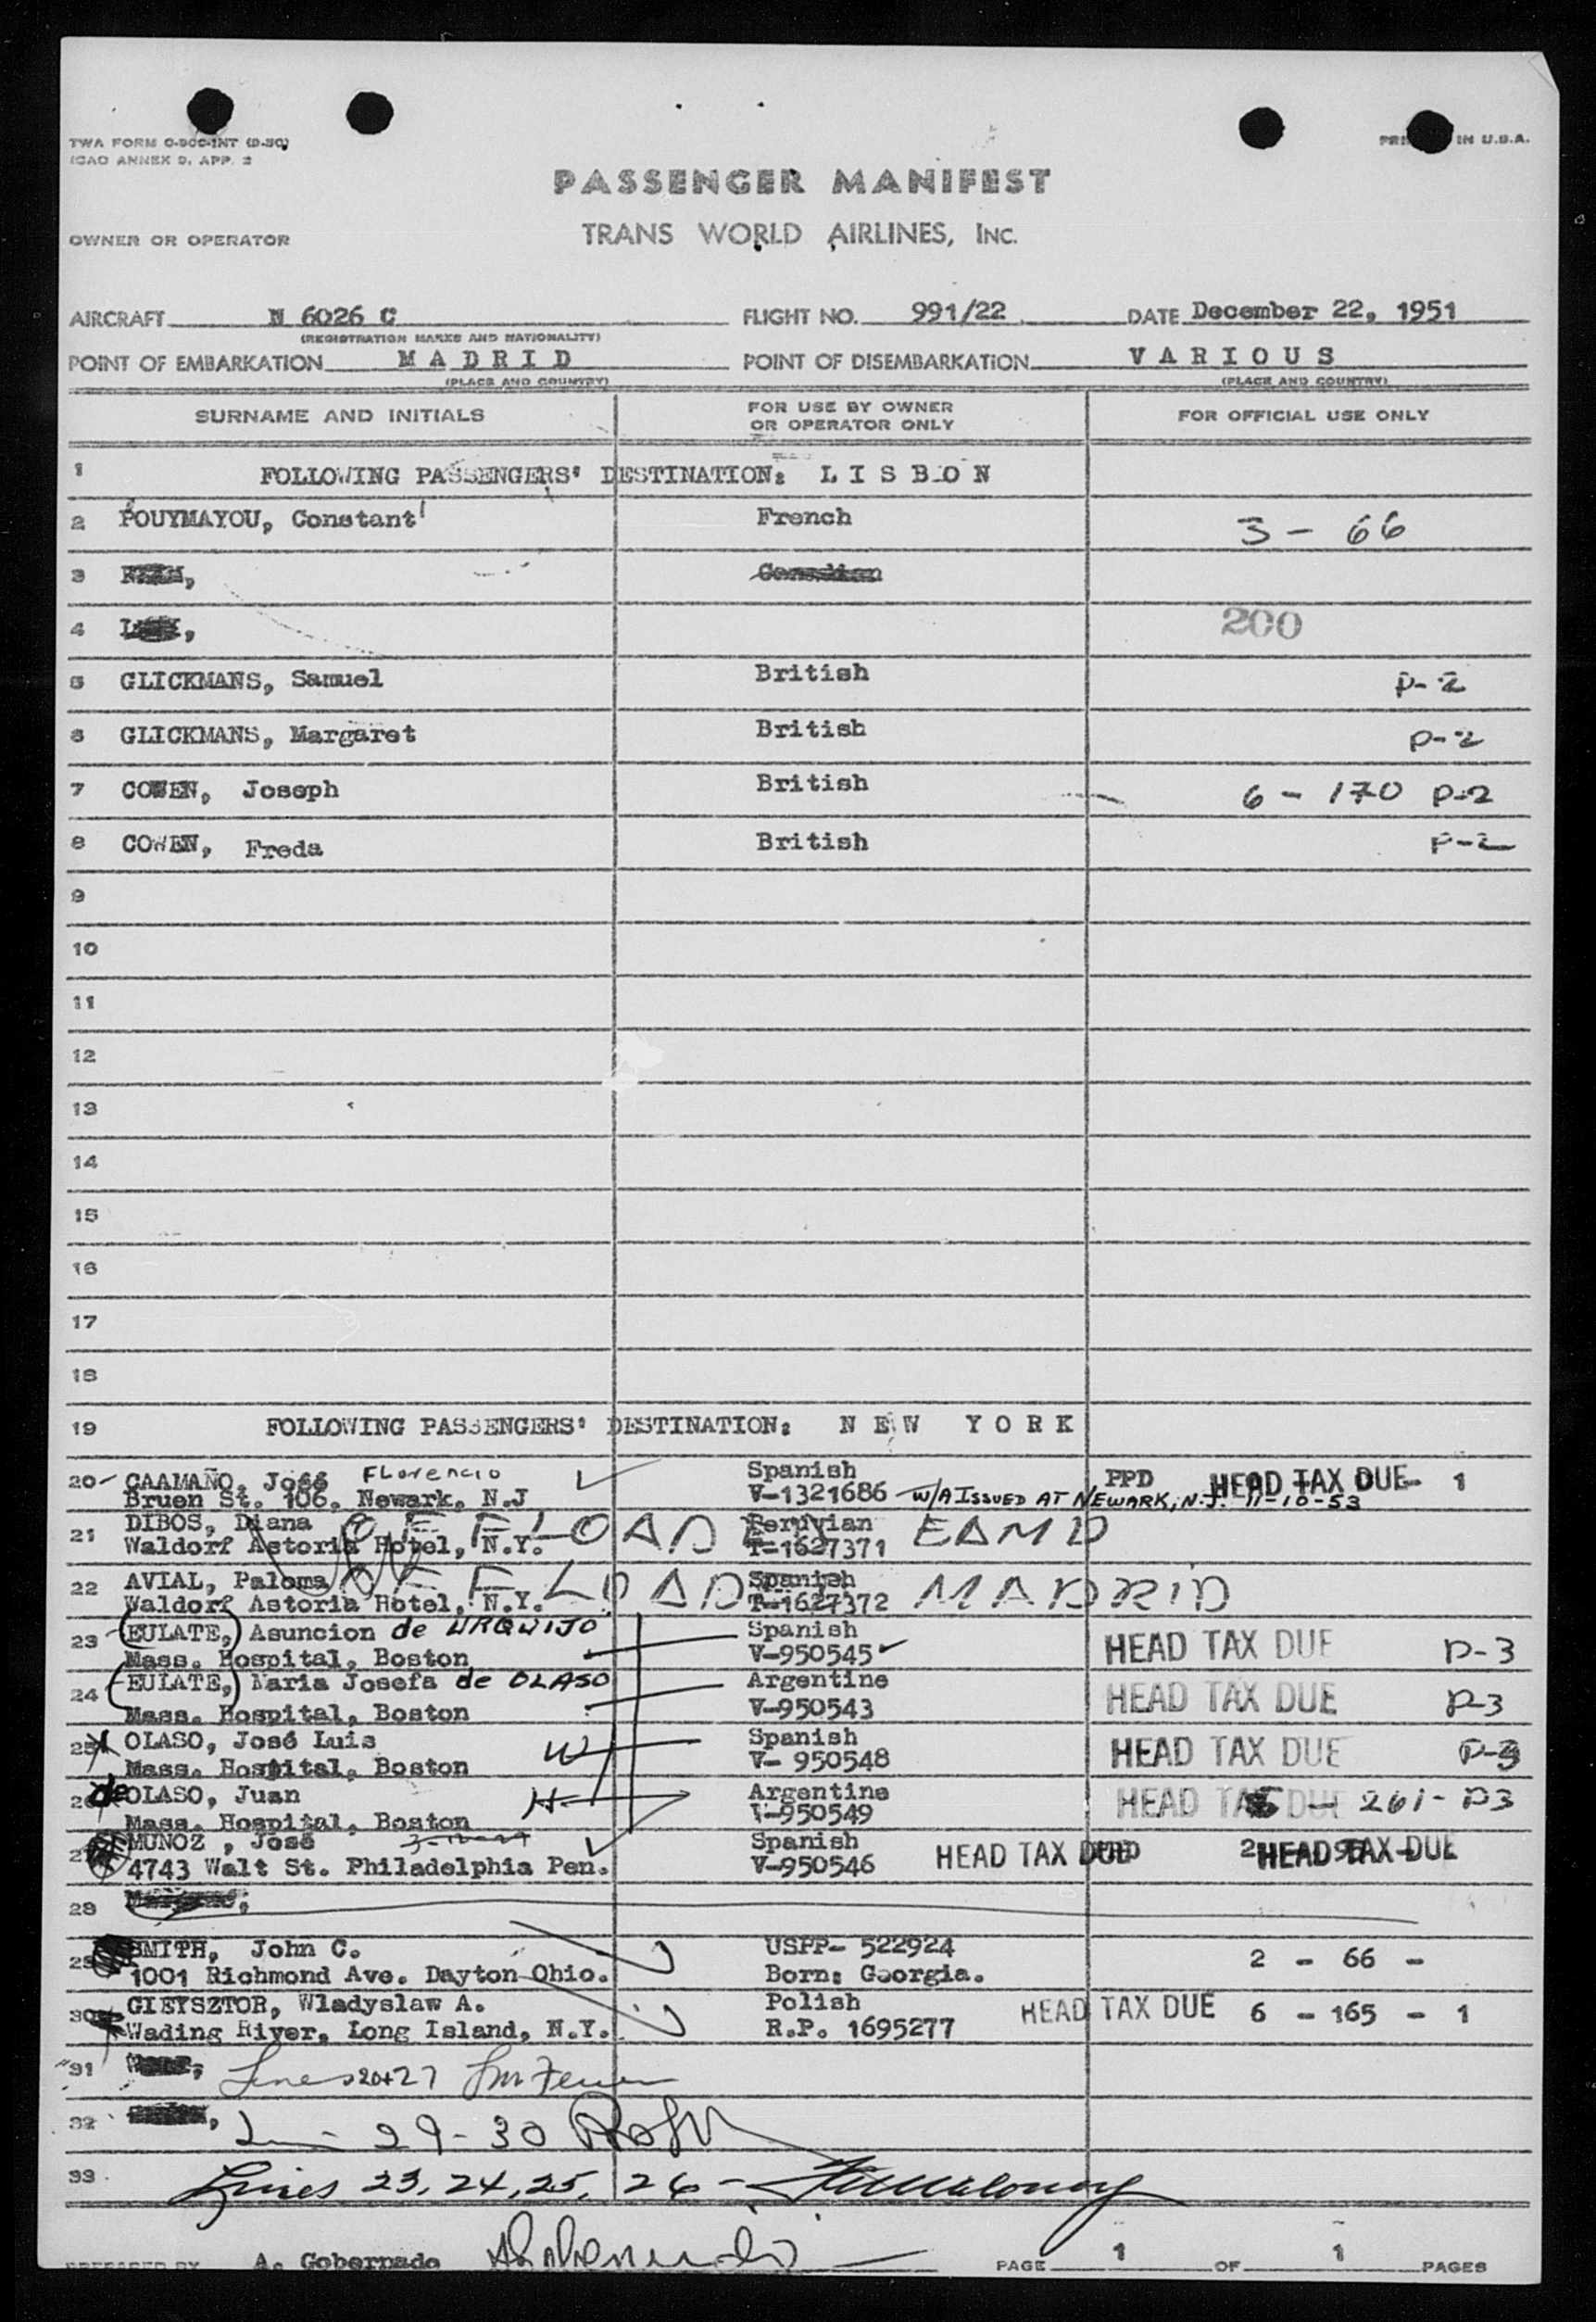 TWA FORM O-900-INT (9-50)
ICAO ANNEX 9, APP. 2
PRINTED IN U.S.A.
PASSENGER MANIFEST
OWNER OR OPERATOR TRANS WORLD AIRLINES, INC.
AIRCRAFT N 6026 C FLIGHT NO. 991/22 DATE December 22, 1951
(REGISTRATION MARKS AND NATIONALITY)
POINT OF EMBARKATION M A D R I D POINT OF DISEMBARKATION V A R I O U S
(PLACE AND COUNTRY) (PLACE AND COUNTRY)
SURNAME AND INITIALS FOR USE BY OWNER OR OPERATOR ONLY FOR OFFICIAL USE ONLY
1 FOLLOWING PASSENGERS' DESTINATION: L I S B O N
2 POUYMAYOU, Constant French 3 - 66
3 Canadian
4 200
5 GLICKMANS, Samuel British P-2
6 GLICKMANS, Margaret British P-2
7 COWEN, Joseph British 6 - 170 P-2
8 COWEN, Freda British P-2
9
10
11
12
13
14
15
16
17
18
19 FOLLOWING PASSENGERS' DESTINATION: N E W Y O R K
20 CAAMAÑO, José Florencio Spanish PPD HEAD TAX DUE 1
Bruen St. 106. Newark, N.J V-1321686 W/A ISSUED AT NEWARK, N.J. 11-10-53
21 DIBOS, Diana OFFLOADE Peruvian EDMD
Waldorf Astoria Hotel, N.Y. T-1627371
22 AVIAL, Paloma OFFLOAD Spanish MADRID
Waldorf Astoria Hotel, N.Y. T-1627372
23 (EULATE,) Asuncion de URQUIJO Spanish HEAD TAX DUE P-3
Mass. Hospital, Boston V-950545
24 (EULATE,) Maria Josefa de OLASO Argentine HEAD TAX DUE P-3
Mass. Hospital, Boston V-950543
25 OLASO, José Luis Spanish HEAD TAX DUE P-3
Mass. Hospital, Boston W V- 950548
26 de OLASO, Juan Argentine HEAD TAX DUE 6 - 261 - P3
Mass. Hospital, Boston H V-950549
27 MUÑOZ , José Spanish HEAD TAX DUE 2 HEAD TAX DUE
4743 Walt St. Philadelphia Pen. V-950546
28
29 SMITH, John C. USPP- 522924 2 - 66 -
1001 Richmond Ave. Dayton Ohio. Born: Georgia.
30 GIEYSZTOR, Wladyslaw A. Polish HEAD TAX DUE 6 - 165 - 1
Wading River, Long Island, N.Y. R.P. 1695277
31 Lines 20+27
32 29-30
33 Lines 23, 24, 25, 26 -
PREPARED BY A. Gobernado PAGE 1 OF 1 PAGES